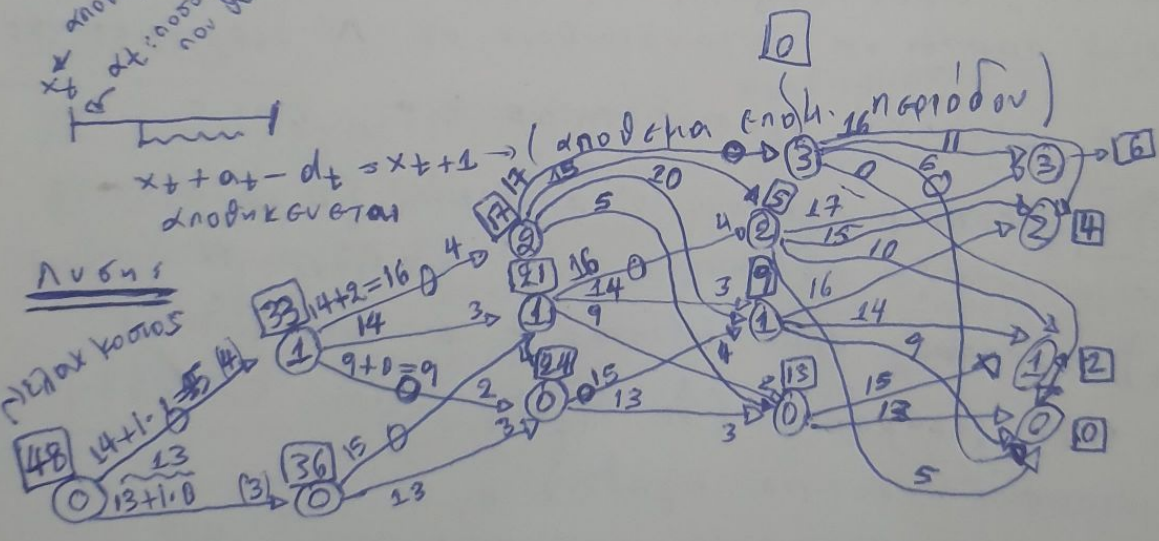 0
x_t + a_t - d_t = x_t+1 → (αποθεμα επομ. περιόδου)
αποθηκευεται
Λυση:
ελαχ κοστος
48
0
14+1·1=15 (4)
13
13+1·0 (3)
33
1
14+2=16 4
14 3
9+0=9
36
0
15 2
13 3
17
2
17
15
20
5
21
1
16 4
14 3
9 2
24
0
15 4
13 3
3
16
11
6
0
5
2
17
15
10
5
9
1
16
14
9
13
0
15
13
3
6
2
4
1
2
0
0